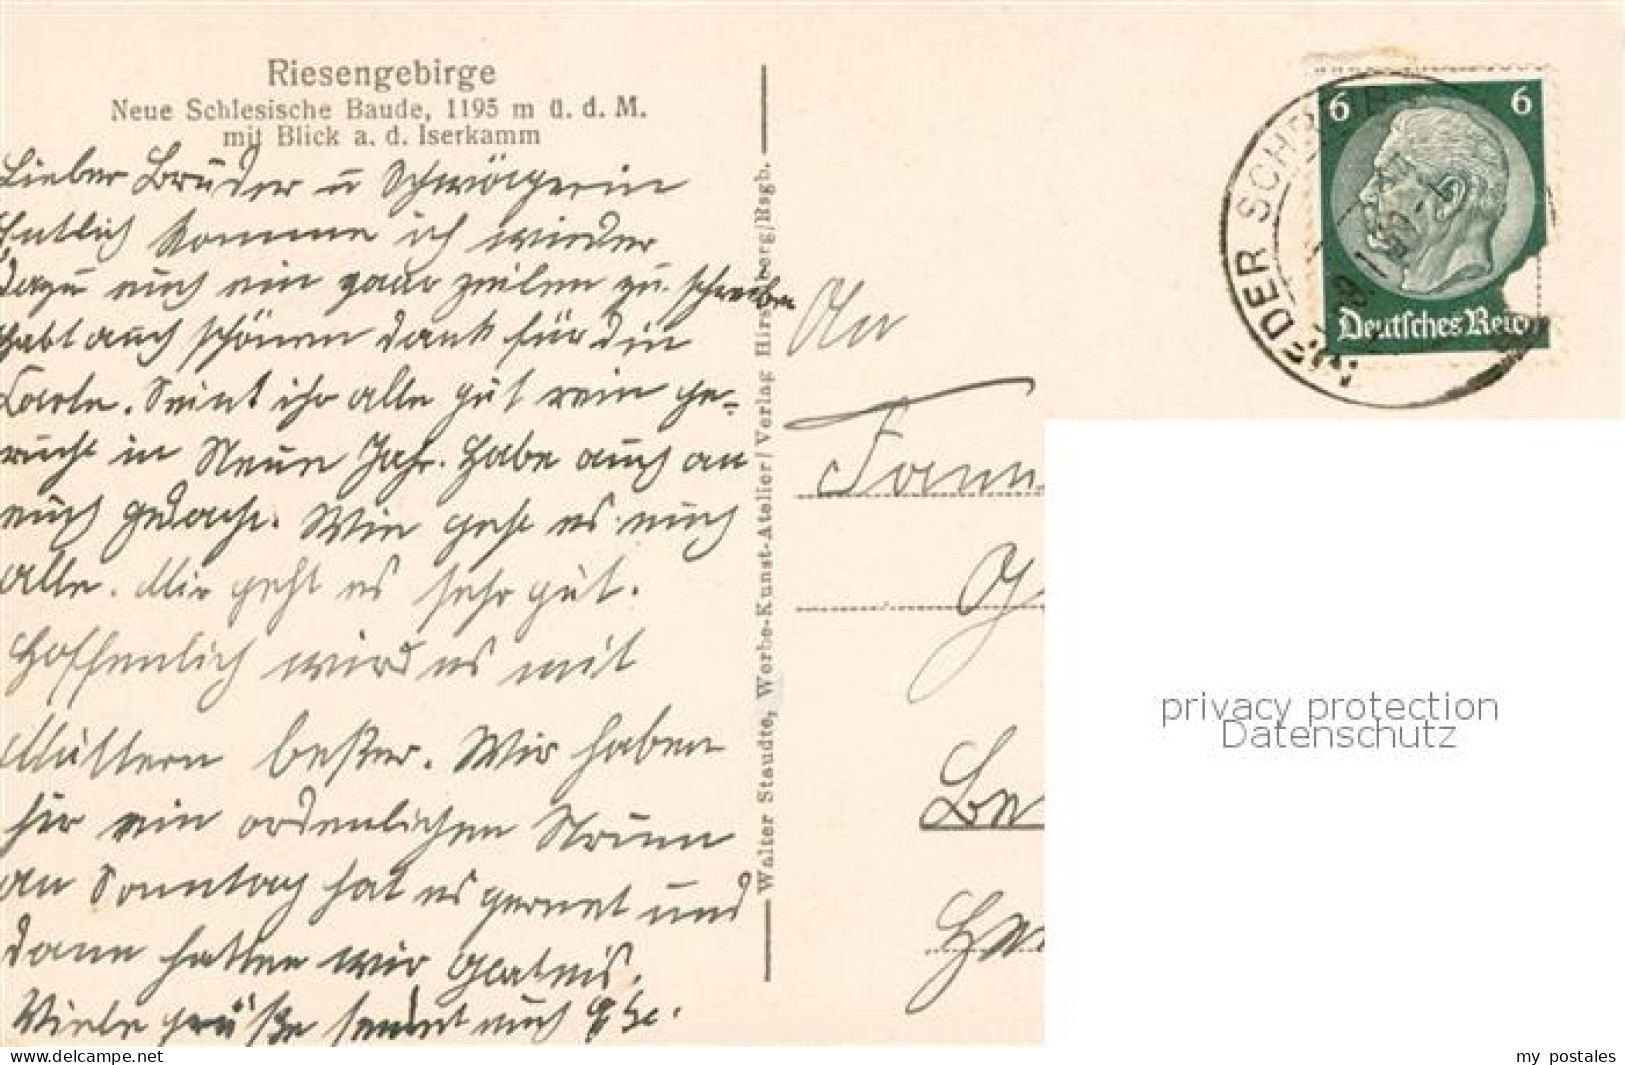 Riesengebirge
Neue Schlesische Baude, 1195 m ü. d. M.
mit Blick a. d. Iserkamm
Lieber Bruder u Schwägerin
Entlich komme ich wieder
dazu euch ein paar zeilen zu schreiben
habt auch schönen dank für die
Karte. Seint ihr alle gut rein ge-
rucht in Neun Jahr. Habe auch an
euch gedacht. Wie geht es euch
alle. Mir geht es sehr gut.
Hoffenlich wird es mit
Muttern beßer. Wir haben
hir ein ordenlichen
an Sonntag hat es gerent und
dann hatten wir Glateis.
Viele grüße sendet euch
Walter Staudte, Werbe-Kunst-Atelier/Verlag Hirschberg/Rsgb.
An
Fam
Ge
He
6 6
Deutsches Reich
NIEDER SCHR
privacy protection
Datenschutz
www.delcampe.net
my_postales